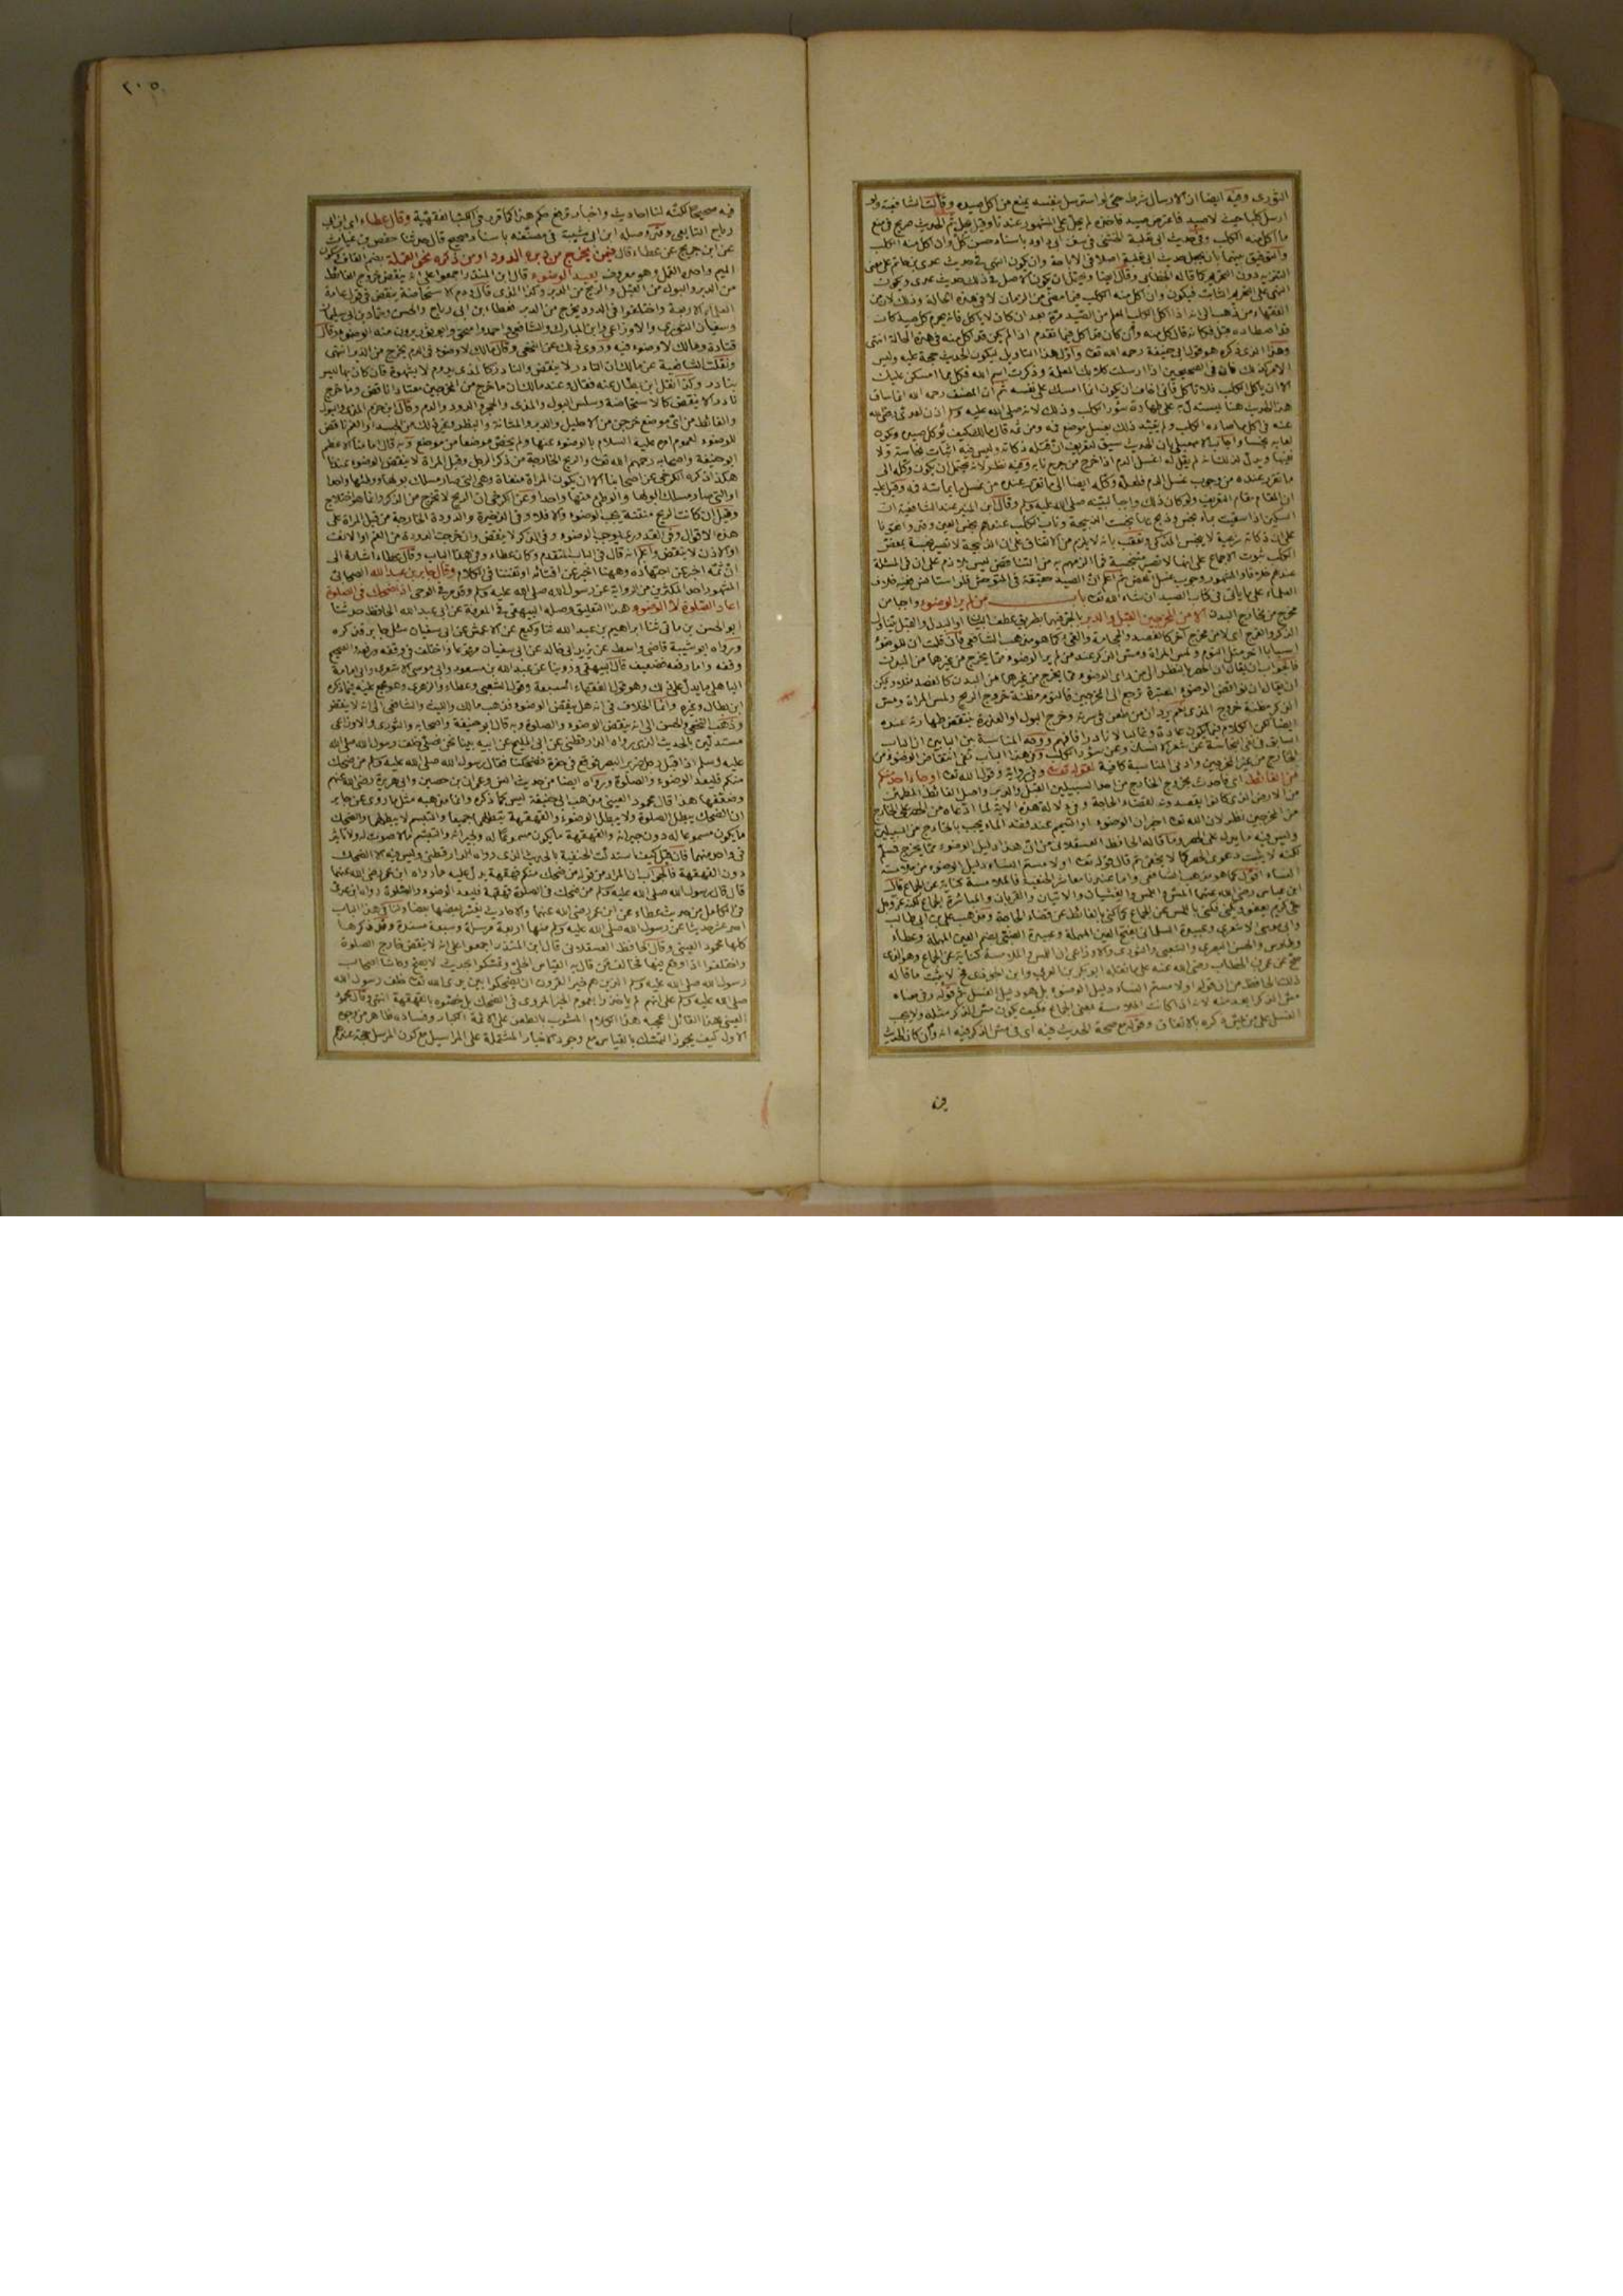 الثوري وفيه ايضا ان الارسال شرط حتى لو استرسل بنفسه يمنع من اكل صيده وقالت الشافعية ولو
ارسل كلبا حيث لا صيد فاعترض صيد فاخذه لم يحل على المشهور عندنا وقيل يحل ثم الحديث صريح في منع
ما اكل منه الكلب وفي حديث ابي ثعلبة الخشني في سنن ابي داود باسناد حسن كل وان اكل منه الكلب
والتوفيق بينهما بان يجعل حديث ابي ثعلبة اصلا في الاباحة وان يكون النهي في حديث عدي بن حاتم على معنى
التنزيه دون التحريم كما قاله الخطابي وقال ايضا ويحتمل ان يكون الاصل في ذلك حديث عدي ويكون
النهي على التحريم الثابت فيكون وان اكل منه الكلب فيما مضى من الزمان لا في هذه الحالة وذلك لان من
الفقهاء من ذهب الى انه اذا اكل الكلب المعلم من الصيد مرة بعد ان كان لا ياكل فانه يحرم كل صيد كان
قد اصطاده قبل فكانه قال كل منه وان كان قد اكل فيما تقدم اذا لم يكن قد اكل منه في هذه الحالة انتهى
وهذا الذي ذكره هو قول ابي حنيفة رحمه الله تعالى واول هذا التاويل ليكون الحديث حجة عليه وليس
الامر كذلك فان في الصحيحين اذا ارسلت كلابك المعلمة وذكرت اسم الله فكل مما امسكن عليك
الا ان ياكل الكلب فلا تاكل فاني اخاف ان يكون انما امسك على نفسه ثم ان المصنف رحمه الله انما ساق
هذا الحديث هنا ليستدل به على طهارة سؤر الكلب وذلك لانه صلى الله عليه وسلم اذن لعدي رضي الله
عنه في اكل ما صاده الكلب ولم يقيد ذلك بغسل موضع فمه ومن ثمه قال مالك كيف يؤكل صيده ويكون
لعابه نجسا واجاب الاسمعيلي بان الحديث سيق لتعريف ان قتله ذكاته وليس فيه اثبات نجاسة ولا
نفيها ويدل لذلك انه لم يقل له اغسل الدم اذا خرج من جرح نابه وفيه نظر لانه يحتمل ان يكون وكله الى
ما تقرر عنده من وجوب غسل الدم فلعله وكله ايضا الى ما تقرر عنده من غسل ما يماسه فمه وقيل عليه
ان المقام مقام التعريف ولو كان ذلك واجبا لبينه صلى الله عليه وسلم وقال ابن المنير عند الشافعية ان
السكين اذا سقيت بماء نجس وذبح بها نجست الذبيحة وناب الكلب عندهم نجس العين وقد وافقونا
على ان ذكاته شرعية لا ينجس المذكى وتعقب بانه لا يلزم من الاتفاق على ان الذبيحة لا تصير نجسة بعض
الكلب ثبوت الاجماع على انها لا تصير متنجسة فما الزمهم به من التناقض ليس بلازم على ان في المسئلة
عندهم خلافا والمشهور وجوب غسل المعض ثم اعلم ان الصيد حقيقة في المتوحش فلو استانس ففيه خلاف
العلماء على ما ياتي في كتاب الصيد ان شاء الله تعالى باب من لم ير الوضوء واجبا من
مخرج من مخارج البدن الا من المخرجين القبل والدبر بالجر فيهما بطريق عطف البيان او البدل والقبل يتناول
الذكر والفرج اي لا من مخرج آخر كالفصد والحجامة والقيء كما هو مذهب الشافعي فان قلت ان للوضوء
اسبابا اخر مثل النوم ولمس المراة ومس الذكر عند من لم ير الوضوء مما يخرج من غيرهما من البدن
فالجواب ان يقال ان الحصر بالنظر الى من راى الوضوء مما يخرج من غيرهما من البدن كالفصد مثلا ويمكن
ان يقال ان نواقض الوضوء المعتبرة ترجع الى المخرجين فالنوم مظنة خروج الريح ولمس المراة ومس
الذكر مظنة خروج المذي نعم يرد ان من طعن في سرته وخرج البول او العذرة ينتقض طهارته عنده
ايضا لكن الكلام فيما يكون عادة وغالبا لا نادرا فافهم ووجه المناسبة بين البابين ان الباب
السابق في نفي النجاسة عن شعر الانسان وعن سؤر الكلب وفي هذا الباب نفي انتقاض الوضوء من
الخارج من غير المخرجين وادنى المناسبة كافية لقوله تعالى وفي رواية وقول الله تعالى او جاء احد منكم
من الغائط اي فاحدث بخروج الخارج من احد السبيلين القبل والدبر واصل الغائط المطمئن
من الارض الذي كانوا يقصدونه لقضاء الحاجة وفي دلالة هذه الاية لما ادعاه من الحصر على الخارج
من المخرجين نظر لان الله تعالى اخبر ان الوضوء او التيمم عند فقد الماء يجب بالخارج من السبيلين
وليس فيه ما يدل على الحصر وما قاله الحافظ العسقلاني من ان هذا دليل الوضوء مما يخرج فمسلم
لكنه لا يثبت دعوى الحصر كما لا يخفى ثم قال قوله تعالى او لامستم النساء دليل الوضوء من ملامسة
النساء اقول كما هو مذهب الشافعي واما عندنا معاشر الحنفية فالملامسة كناية عن الجماع قال
ابن عباس رضي الله عنهما المس واللمس والغشيان والاتيان والقربان والمباشرة الجماع لكنه عز وجل
حيي كريم يعفو ويكني فكنى باللمس عن الجماع كما كنى بالغائط عن قضاء الحاجة ومذهب علي بن ابي طالب
وابي موسى الاشعري وعبيدة السلماني بفتح العين المهملة وعبيدة الضبي بضم العين المهملة وعطاء
وطاوس والحسن البصري والشعبي والثوري والاوزاعي ان اللمس والملامسة كناية عن الجماع وهو الذي
صح عن عمر بن الخطاب رضي الله عنه على ما نقله ابو بكر بن العربي وابن الجوزي فح لا يثبت ما قاله
ذلك الحافظ من ان قوله او لامستم النساء دليل الوضوء بل هو دليل الغسل ثم قوله وفي معناه
مس الذكر ابعد منه لانه اذا كانت الملامسة بمعنى الجماع فكيف يكون مس الذكر مثله ولا يجب
الغسل على من مس ذكره بالاتفاق وقوله مع صحة الحديث فيه اي في مس الذكر فيه انه وان كان الحديث
فيه
٢٠٥
فيه صحيحا لكنه لنا احاديث واخبار ترفع حكم هذا كما قرر في الكتب الفقهية وقال عطاء اي ابن ابي
رباح التابعي وقد وصله ابن ابي شيبة في مصنفه باسناد صحيح قال حدثنا حفص بن غياث
عن ابن جريج عن عطاء قال فيمن يخرج من دبره الدود او من ذكره نحو القملة بفتح القاف وسكون
الميم واحد القمل وهو معروف يعيد الوضوء قال ابن المنذر اجمعوا على انه ينقض خروج الغائط
من الدبر والبول من القبل والريح من الدبر وكذا المذي قال ودم الاستحاضة ينقض في قول عامة
العلماء الا ربيعة واختلفوا في الدود يخرج من الدبر فعطاء ابن ابي رباح والحسن وحماد بن ابي سليمان
وسفيان الثوري والاوزاعي وابن المبارك والشافعي واحمد واسحق وابو ثور يرون منه الوضوء وقال
قتادة ومالك لا وضوء فيه وروي ذلك عن النخعي وقال مالك لا وضوء في الدم يخرج من الدبر انتهى
ونقلت الشافعية عن مالك ان النادر لا ينقض والنادر كالمذي يدوم لا بشهوة فان كان بها ليس
بنادر وكذا نقل ابن بطال عنه فقال وعند مالك ان ما خرج من المخرجين معتادا ناقض وما خرج
نادرا لا ينقض كالاستحاضة وسلس البول والمذي والحجر والدود والدم وقال ابن حزم المذي والبول
والغائط من اي موضع خرجن من الاحليل والدبر والمثانة والبطن وغير ذلك من الجسد او الفم ناقض
للوضوء لعموم امره عليه السلام بالوضوء عنها ولم يخص موضعا من موضع وبه قال امامنا الاعظم
ابو حنيفة واصحابه رحمهم الله تعالى والريح الخارجة من ذكر الرجل وقبل المراة لا ينقض الوضوء عندنا
هكذا ذكره الكرخي عن اصحابنا الا ان يكون المراة مفضاة وهي التي صار مسلك بولها ووطئها واحدا
او التي صار مسلك البول والوطئ منها واحدا وعن الكرخي ان الريح لا تخرج من الذكر وانما هو اختلاج
وقيل ان كانت الريح منتنة يجب الوضوء والا فلا وفي الذخيرة والدودة الخارجة من قبل المراة على
هذه الاقوال وفي القدوري يوجب الوضوء وفي الذكر لا ينقض وان خرجت الدودة من الفم او الانف
او الاذن لا ينقض واعلم انه قال في الباب المتقدم وكان عطاء وفي هذا الباب وقال عطاء اشارة الى
ان ثمه اخبر عن اجتهاده وههنا اخبر عن افتائه او تفننا في الكلام وقال جابر بن عبد الله الصحابي
المشهور احد المكثرين من الرواية عن رسول الله صلى الله عليه وسلم وقد مر في الوحي اذا ضحك في الصلوة
اعاد الصلوة لا الوضوء هذا التعليق وصله البيهقي في المعرفة عن ابي عبد الله الحافظ حدثنا
ابو الحسن بن ماتي ثنا ابراهيم بن عبد الله ثنا وكيع عن الاعمش عن ابي سفيان سئل جابر فذكره
ورواه ابو شيبة قاضي واسط عن يزيد ابي خالد عن ابي سفيان مرفوعا واختلف في وقفه ورفعه والصحيح
وقفه واما رفعه فضعيف قال البيهقي وروينا عن عبد الله بن مسعود وابي موسى الاشعري وابي امامة
الباهلي ما يدل على ذلك وهو قول الفقهاء السبعة وقول الشعبي وعطاء والزهري وهو مجمع عليه فيما ذكره
ابن بطال وغيره وانما الخلاف في انه هل ينقض الوضوء فذهب مالك والليث والشافعي الى انه لا ينقض
وذهب النخعي والحسن الى انه ينقض الوضوء والصلوة وبه قال ابو حنيفة واصحابه والثوري والاوزاعي
مستدلين بالحديث الذي رواه الدارقطني عن ابي المليح عن ابيه بينا نحن نصلي خلف رسول الله صلى الله
عليه وسلم اذ اقبل رجل ضرير البصر فوقع في حفرة فضحكنا فقال رسول الله صلى الله عليه وسلم من ضحك
منكم فليعد الوضوء والصلوة ورواه ايضا من حديث انس وعمران بن حصين وابي هريرة رضي الله عنهم
وضعفها هذا قال محمود العيني مذهب ابي حنيفة ليس كما ذكره وانما مذهبه مثل ما روي عن جابر
ان الضحك يبطل الصلوة ولا يبطل الوضوء والقهقهة تبطلهما جميعا والتبسم لا يبطلهما والضحك
ما يكون مسموعا له دون جيرانه والقهقهة ما يكون مسموعا له ولجيرانه والتبسم ما لا صوت له ولا تاثير
في واحد منهما فان قيل كيف استدلت الحنفية بالحديث الذي رواه الدارقطني وليس فيه الا الضحك
دون القهقهة فالجواب ان المراد من قوله من ضحك منكم قهقهة يدل عليه ما رواه ابن عمر رضي الله عنهما
قال قال رسول الله صلى الله عليه وسلم من ضحك في الصلوة قهقهة فليعد الوضوء والصلوة رواه ابن عدي
في الكامل من حديث عطاء عن ابن عمر رضي الله عنهما والاحاديث يفسر بعضها بعضا ولنا في هذا الباب
احد عشر حديثا عن رسول الله صلى الله عليه وسلم منها اربعة مرسلة وسبعة مسندة وقد ذكرها
كلها محمود العيني وقال الحافظ العسقلاني قال ابن المنذر اجمعوا على انه لا ينقض خارج الصلوة
واختلفوا اذا وقع فيها فخالف من قال به القياس الجلي وتمسكوا بحديث لا يصح وحاشا اصحاب
رسول الله صلى الله عليه وسلم الذين هم خير القرون ان يضحكوا بين يدي الله تعالى خلف رسول الله
صلى الله عليه وسلم على انهم لم ياخذوا بعموم الخبر المروي في الضحك بل خصوه بالقهقهة انتهى وقال محمود
العيني هذا القائل اعجبه هذا الكلام المشوب بالطعن على الائمة الكبار وفساده ظاهر من وجوه
الاول كيف يجوز التمسك بالقياس مع وجود الاخبار المشتملة على المراسيل مع كون المرسل حجة عندهم